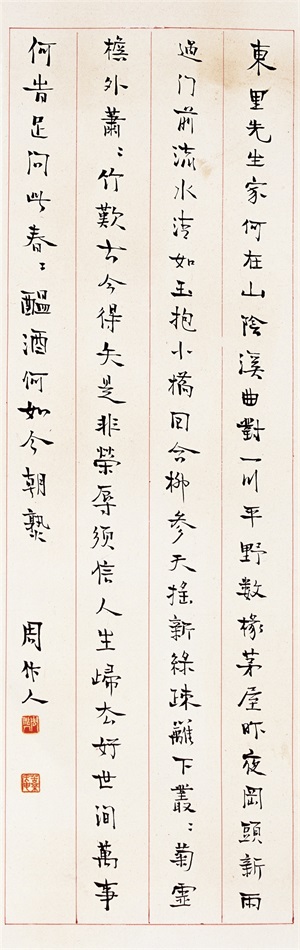 東里先生家何在山陰溪曲對一川平野數椽茅屋昨夜岡頭新雨
過门前流水清如玉抱小橋回合柳參天搖新綠疎籬下叢〻菊虛
檐外蕭〻竹歎古今得失是非榮辱須信人生歸去好世间萬事
何旹足问此春〻醖酒何如今朝熟
周作人